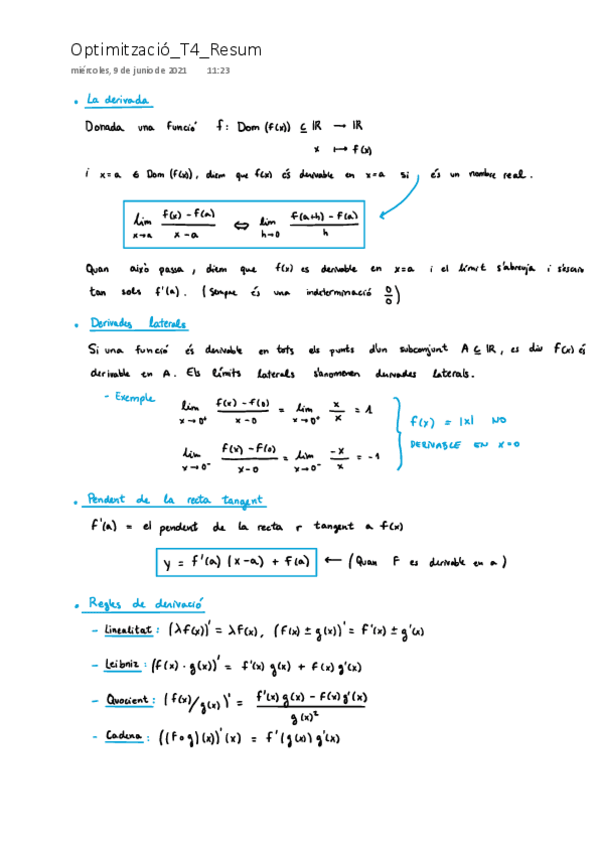 Optimització_T4_Resum
miércoles, 9 de junio de 2021 11:23
• La derivada
Donada una funció f: Dom (f(x)) ⊆ ℝ → ℝ
x ↦ f(x)
i x=a ∈ Dom (f(x)), diem que f(x) és derivable en x=a si és un nombre real.
lim x→a (f(x) - f(a))/(x - a) ⇔ lim h→0 (f(a+h) - f(a))/h
Quan això passa, diem que f(x) es derivable en x=a i el límit s'abreuja i s'escriu
tan sols f'(a). (Sempre és una indeterminació 0/0)
• Derivades laterals
Si una funció és derivable en tots els punts d'un subconjunt A ⊆ ℝ, es diu f(x) és
derivable en A. Els límits laterals s'anomenen derivades laterals.
- Exemple
lim x→0⁺ (f(x) - f(0))/(x - 0) = lim x→0⁺ x/x = 1
f(x) = |x| NO
DERIVABLE EN x=0
lim x→0⁻ (f(x) - f(0))/(x - 0) = lim x→0⁻ -x/x = -1
• Pendent de la recta tangent
f'(a) = el pendent de la recta r tangent a f(x)
y = f'(a) (x-a) + f(a) ← (Quan f es derivable en a)
• Regles de derivació
- Linealitat: (λf(x))' = λf(x), (f(x) ± g(x))' = f'(x) ± g'(x)
- Leibniz: (f(x) · g(x))' = f'(x) g(x) + f(x) g'(x)
- Quocient: (f(x)/g(x))' = (f'(x) g(x) - f(x) g'(x))/g(x)²
- Cadena: ((f∘g)(x))'(x) = f'(g(x)) g'(x)